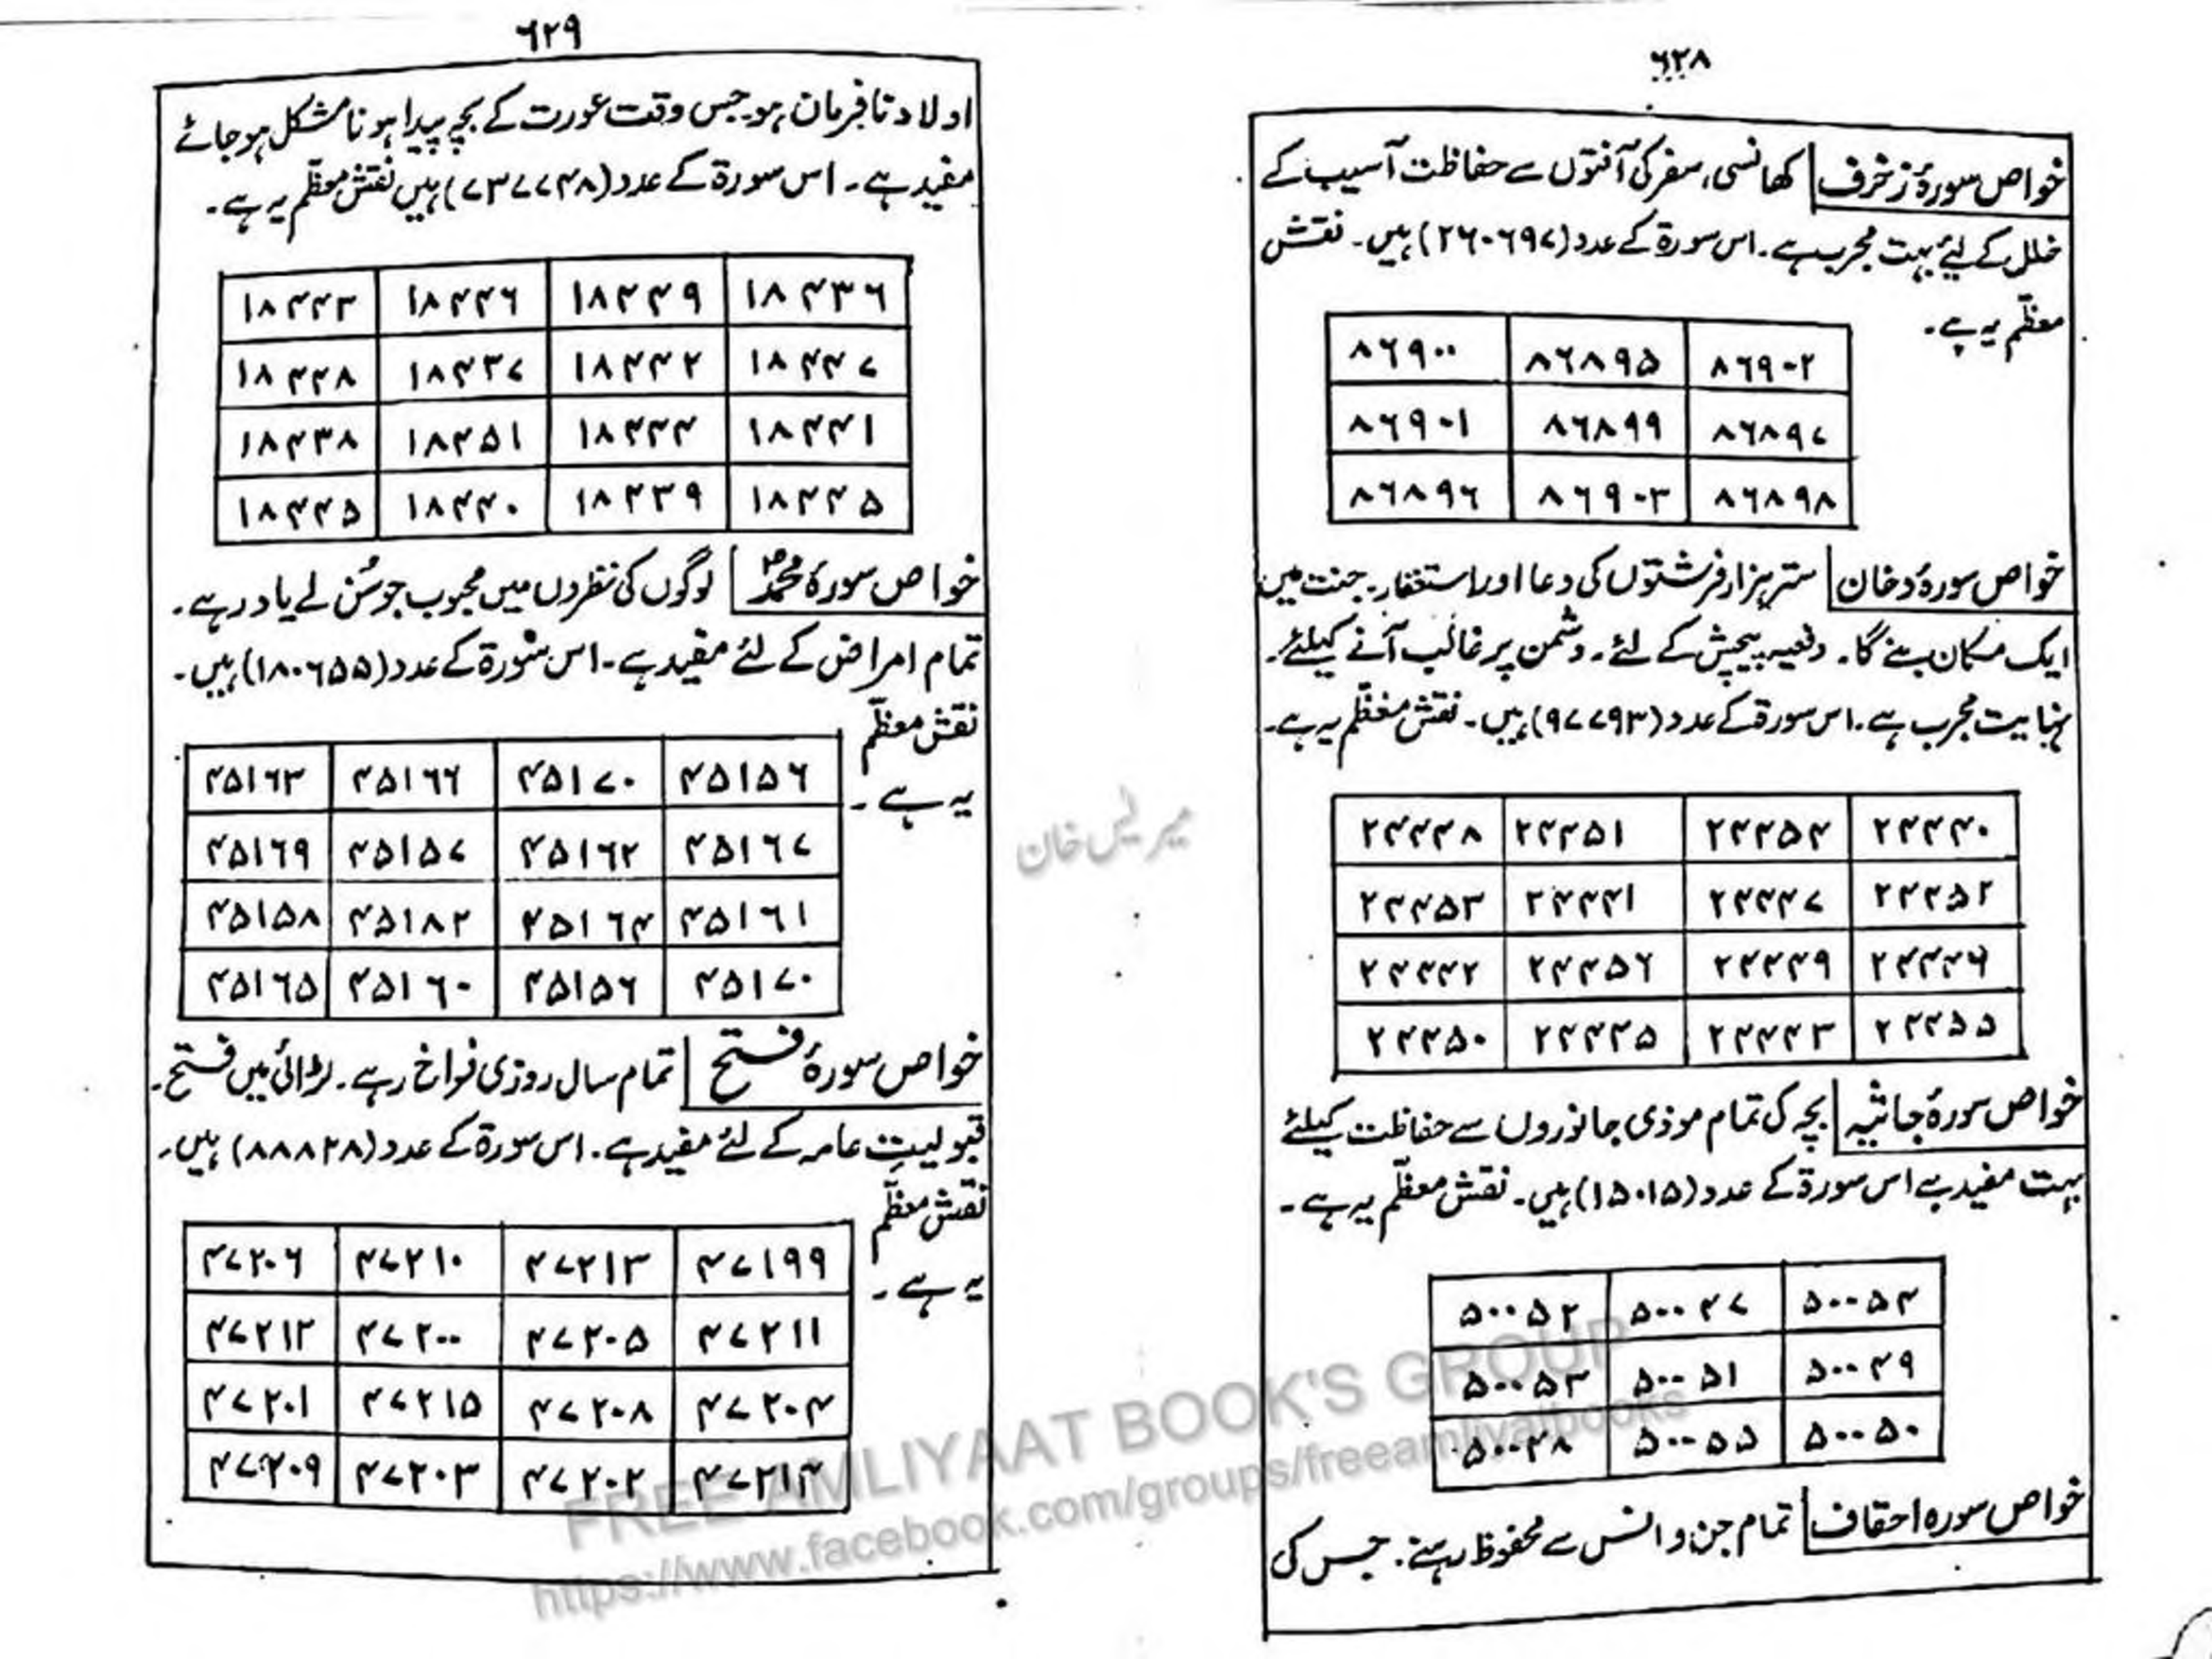 ۶۲۸
خواص سورۂ زخرف کھانسی، سفر کی آفتوں سے حفاظت آسیب کے
خلل کے لیئے بہت مجرب ہے۔ اس سورۃ کے عدد (۲۶۰۶۹۷) ہیں۔ نقش
معظّم یہ ہے۔
۸۶۹۰۰ ۸۶۸۹۵ ۸۶۹۰۲
۸۶۹۰۱ ۸۶۸۹۹ ۸۶۸۹۷
۸۶۸۹۶ ۸۶۹۰۳ ۸۶۸۹۸
خواص سورۂ دخان ستر ہزار فرشتوں کی دعا اور استغفار۔ جنت میں
ایک مکان بنے گا۔ دفعیہ پیچش کے لئے۔ دشمن پر غالب آنے کیلئے۔
نہایت مجرب ہے۔ اس سورۃ کے عدد (۹۷۷۹۳) ہیں۔ نقش معظّم یہ ہے۔
۲۴۴۴۸ ۲۴۴۵۱ ۲۴۴۵۴ ۲۴۴۴۰
۲۴۴۵۳ ۲۴۴۴۱ ۲۴۴۴۷ ۲۴۴۵۲
۲۴۴۴۲ ۲۴۴۵۶ ۲۴۴۴۹ ۲۴۴۴۶
۲۴۴۵۰ ۲۴۴۴۵ ۲۴۴۴۳ ۲۴۴۵۵
خواص سورۂ جاثیہ بچہ کی تمام موذی جانوروں سے حفاظت کیلئے
بہت مفید ہے اس سورۃ کے عدد (۱۵۰۱۵) ہیں۔ نقش معظّم یہ ہے۔
۵۰۰۵۲ ۵۰۰۴۷ ۵۰۰۵۴
۵۰۰۵۳ ۵۰۰۵۱ ۵۰۰۴۹
۵۰۰۴۸ ۵۰۰۵۵ ۵۰۰۵۰
خواص سورہ احقاف تمام جن و انس سے محفوظ رہنے۔ جس کی
۶۲۹
اولاد نافرمان ہو۔ جس وقت عورت کے بچہ پیدا ہونا مشکل ہو جائے
مفید ہے۔ اس سورۃ کے عدد (۷۳۷۷۴۸) ہیں نقش معظّم یہ ہے۔
۱۸۴۴۳ ۱۸۴۴۶ ۱۸۴۴۹ ۱۸۴۳۶
۱۸۴۴۸ ۱۸۴۳۷ ۱۸۴۴۲ ۱۸۴۴۷
۱۸۴۳۸ ۱۸۴۵۱ ۱۸۴۴۴ ۱۸۴۴۱
۱۸۴۴۵ ۱۸۴۴۰ ۱۸۴۳۹ ۱۸۴۴۵
خواص سورۂ محمدؐ لوگوں کی نظروں میں محبوب جو سُن لے یاد رہے۔
تمام امراض کے لئے مفید ہے۔ اس سورۃ کے عدد (۱۸۰۶۵۵) ہیں۔
نقش معظّم
یہ ہے۔
۴۵۱۶۳ ۴۵۱۶۶ ۴۵۱۷۰ ۴۵۱۵۶
۴۵۱۶۹ ۴۵۱۵۷ ۴۵۱۶۲ ۴۵۱۶۷
۴۵۱۵۸ ۴۵۱۸۲ ۴۵۱۶۴ ۴۵۱۶۱
۴۵۱۶۵ ۴۵۱۶۰ ۴۵۱۵۶ ۴۵۱۷۰
خواص سورۂ فتح تمام سال روزی فراخ رہے۔ لڑائی میں فتح۔
قبولیتِ عامہ کے لئے مفید ہے۔ اس سورۃ کے عدد (۸۸۸۲۸) ہیں۔
نقش معظّم
یہ ہے۔
۴۷۲۰۶ ۴۷۲۱۰ ۴۷۲۱۳ ۴۷۱۹۹
۴۷۲۱۲ ۴۷۲۰۰ ۴۷۲۰۵ ۴۷۲۱۱
۴۷۲۰۱ ۴۷۲۱۵ ۴۷۲۰۸ ۴۷۲۰۴
۴۷۲۰۹ ۴۷۲۰۳ ۴۷۲۰۲ ۴۷۲۱۴
خان
FREE AMLIYAAT BOOK'S GROUP
https://www.facebook.com/groups/freeamliyatbooks